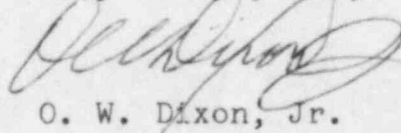 OWDixon
O. W. Dixon, Jr.